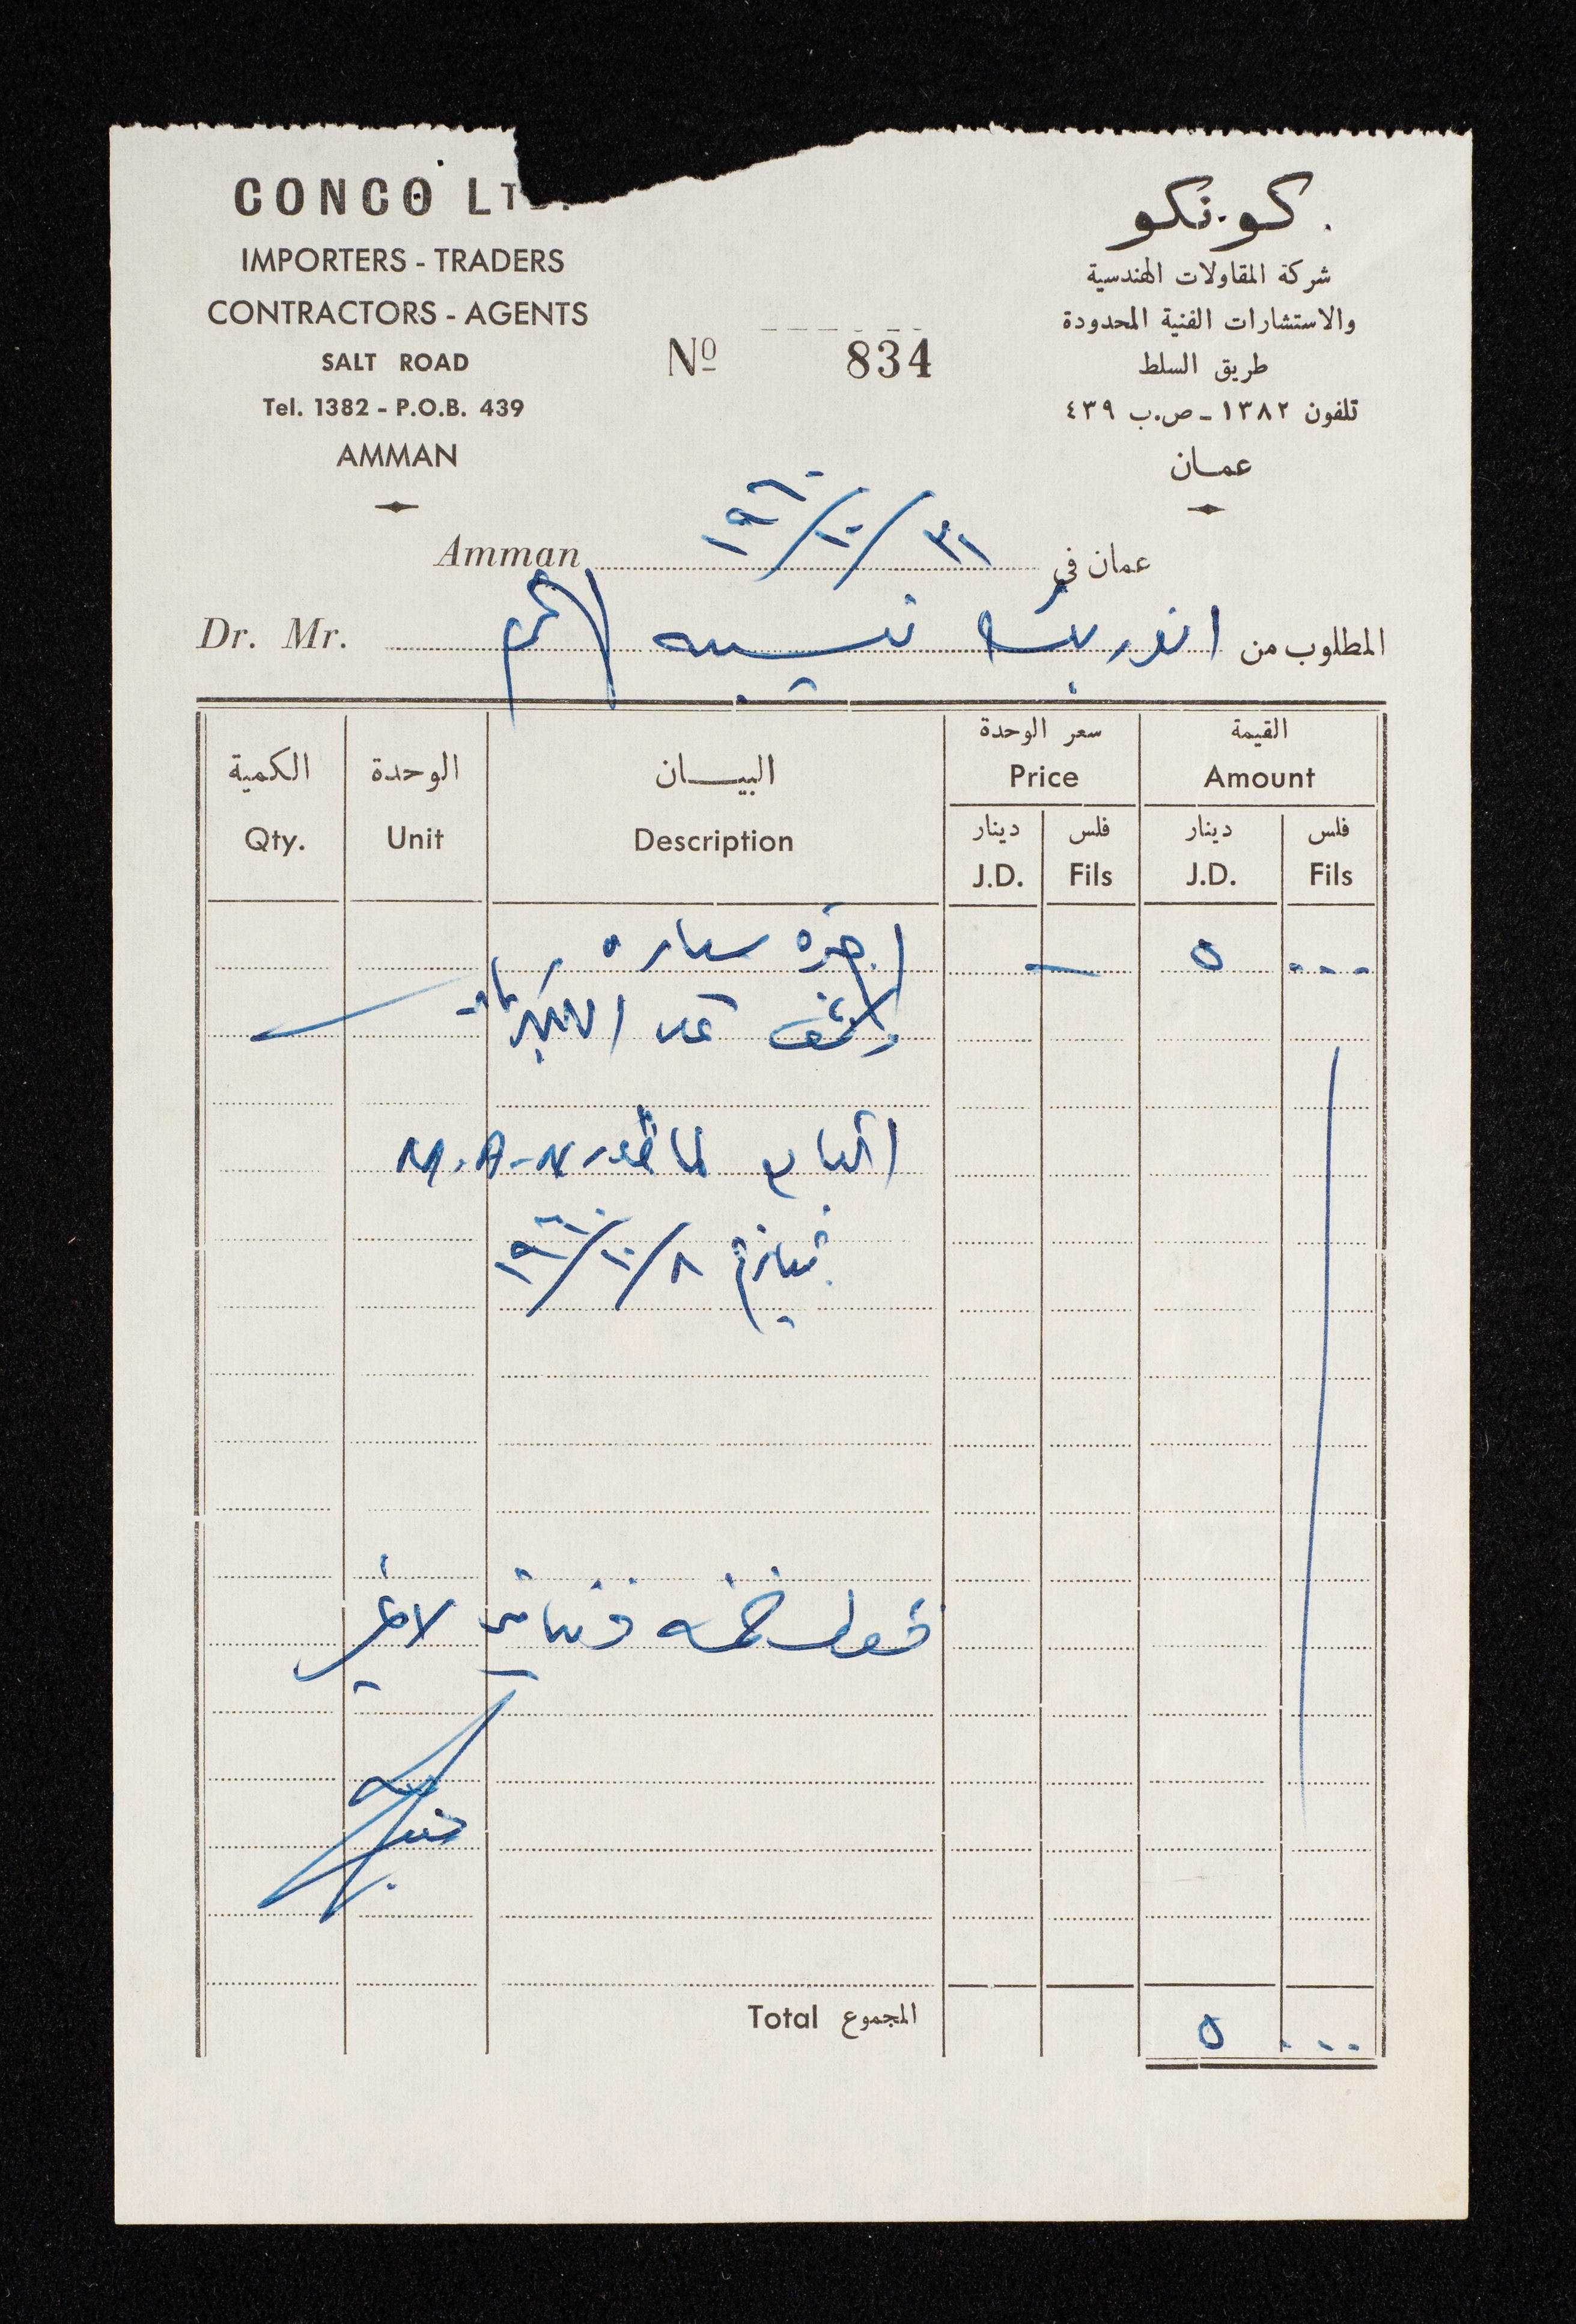 CONCO LTD.
IMPORTERS - TRADERS
CONTRACTORS - AGENTS
SALT ROAD
Tel. 1382 - P.O.B. 439
AMMAN
كونكو
شركة المقاولات الهندسية
والاستشارات الفنية المحدودة
طريق السلط
تلفون ١٣٨٢ - ص.ب ٤٣٩
عمان
Nº 834
Amman ٣١/١٠/١٩٦٠ عمان في
Dr. Mr. المطلوب من انور بك نسيبه
الكمية الوحدة البيان سعر الوحدة القيمة
Qty. Unit Description Price Amount
دينار فلس دينار فلس
J.D. Fils J.D. Fils
اجرة سياره — ٥ ...
الى
M.A.N
بتاريخ ٨/١٠/١٩٦٠
فقط خمسة دنانير لا غير
Total المجموع ٥ ...